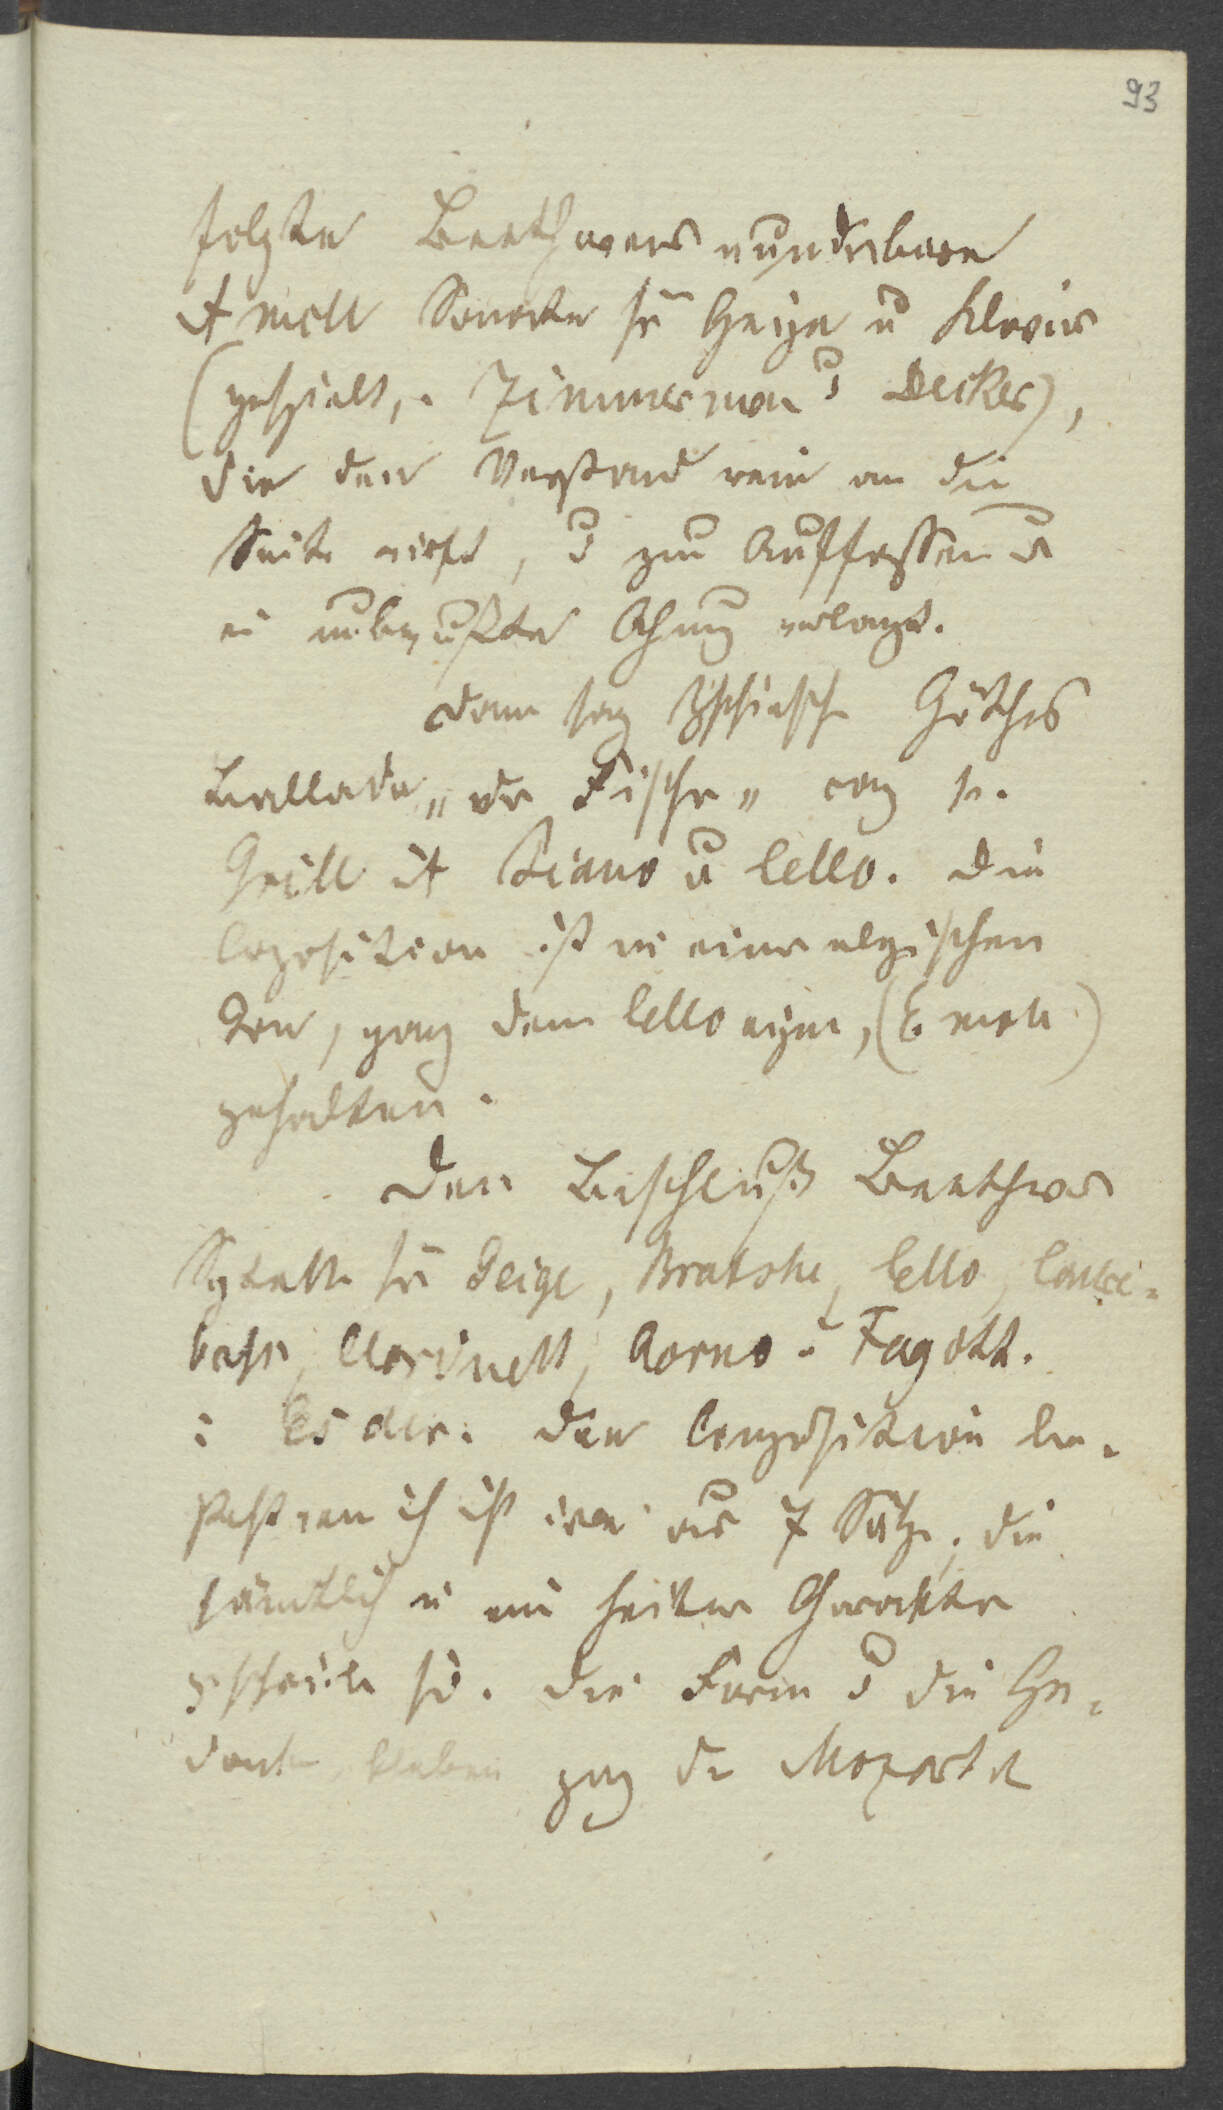 93
folgte Beethovens wunderbare
A moll Sonate für Geige u Klavier
(gespielt, v. Zimmerman u Decker),
die den Verstand rein an die
Seite wirft, u zum Auffassen
ein unbewußte Ahnung verlangt.
Dann sang Zschiesche Göthes
Ballade „der Fischer„ comp v.
Grell mit Piano u Cello. Die
Composition ist in einer elegischen
Ton, ganz dem Cello eigen, (E moll)
gehalten.
Den Beschluß Beethovens
Septett für Geige, Bratsche, Cello, Contre-
bass, Clarinett, Corno u Fagott.
: Es dur. Diese Composition be-
steht wen ich ist irre aus 7 Sätze, die
sämtlich in ein heitern Charakter
geschrieben sid. Die Form u die Ge-
danken kleben ganz den Mozart